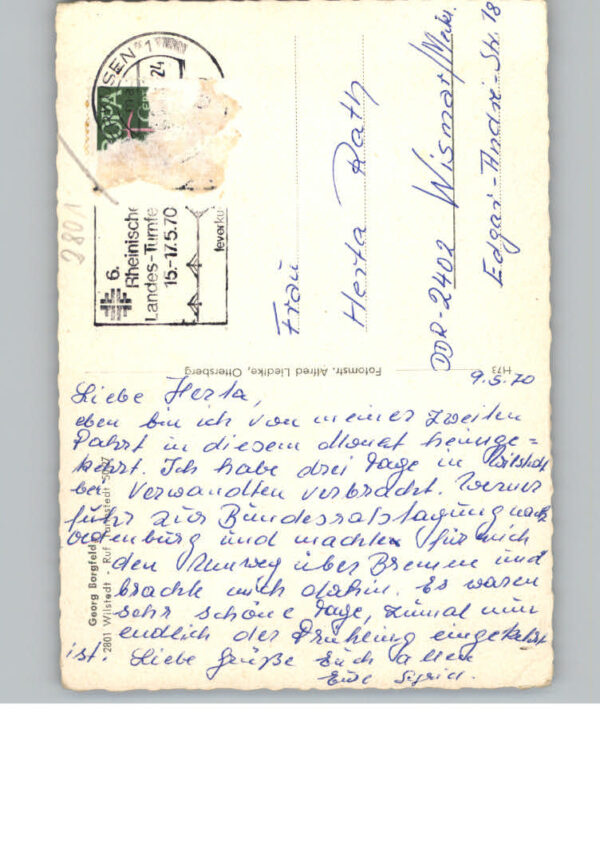 SEN 1
24
EUROPA
CEPT
6.
Rheinische
Landes-Turnfe
15.-17.5.70
leverku
2801
Frau
Herta Rath
DDR-2402 Wismar/Meckl.
Edgar-André-Str. 18
Fotomstr. Alfred Liedtke, Ottersberg
H73
Georg Borgfeld
2801 Wilstedt - Ruf Tarmstedt
9.5.70
Liebe Herta,
eben bin ich von meiner zweiten
Fahrt in diesem Monat heimge=
kehrt. Ich habe drei Tage in Wilstedt
bei Verwandten verbracht. Werner
fuhr zur Bundesratstagung nach
Oldenburg und machte für mich
den Umweg über Bremen und
brachte mich dahin. Es waren
sehr schöne Tage, zumal nun
endlich der Frühling eingekehrt
ist. Liebe Grüße Euch allen
Eure Sigrid.